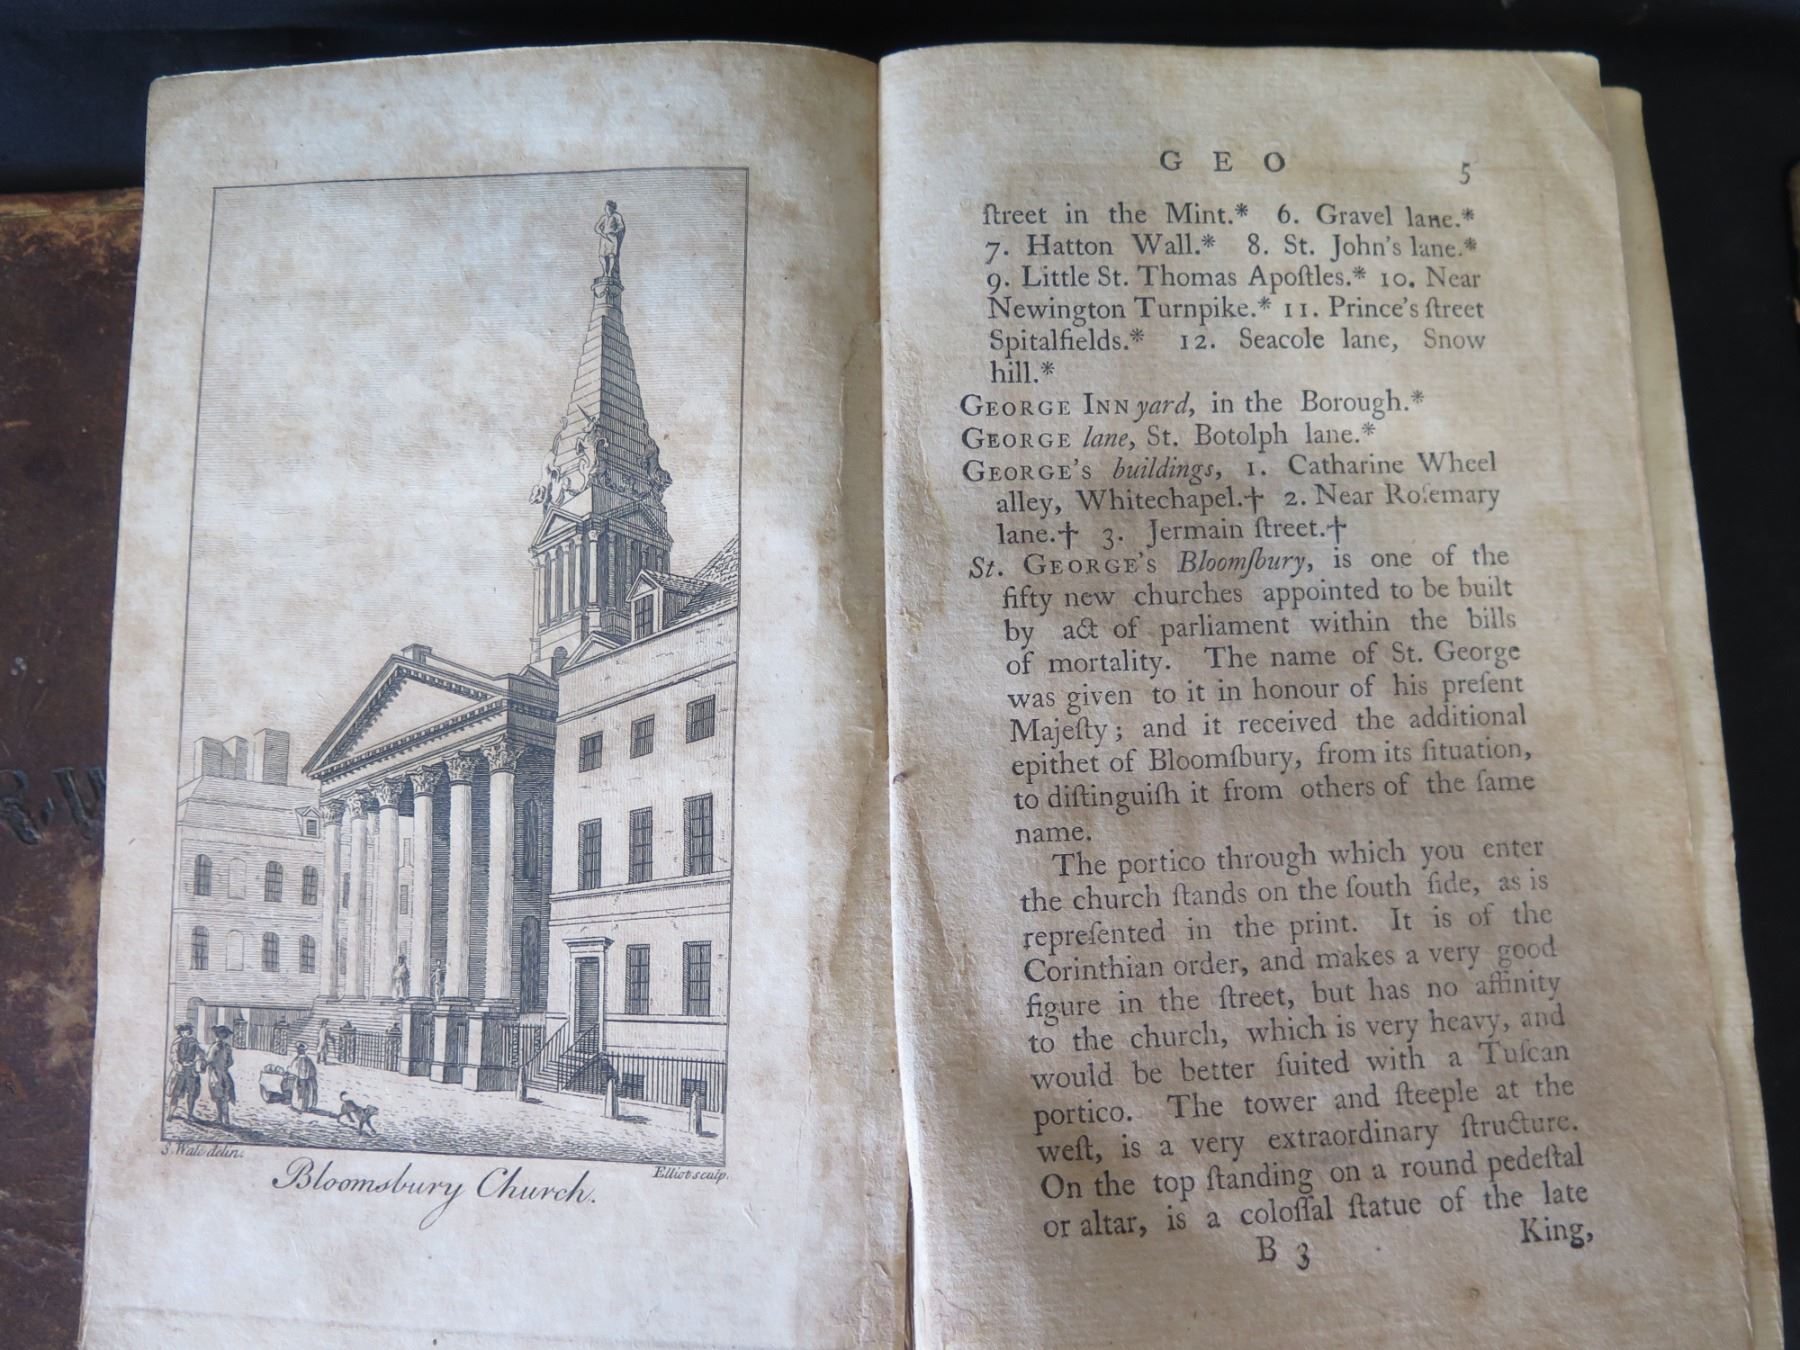 S. Wale delin.
Elliot sculp.
Bloomsbury Church.
GEO 5
ſtreet in the Mint.* 6. Gravel lane.*
7. Hatton Wall.* 8. St. John's lane.*
9. Little St. Thomas Apoſtles.* 10. Near
Newington Turnpike.* 11. Prince's ſtreet
Spitalfields.* 12. Seacole lane, Snow
hill.*
GEORGE INN yard, in the Borough.*
GEORGE lane, St. Botolph lane.*
GEORGE'S buildings, 1. Catharine Wheel
alley, Whitechapel.† 2. Near Roſemary
lane.† 3. Jermain ſtreet.†
St. GEORGE'S Bloomſbury, is one of the
fifty new churches appointed to be built
by act of parliament within the bills
of mortality. The name of St. George
was given to it in honour of his preſent
Majeſty; and it received the additional
epithet of Bloomſbury, from its ſituation,
to diſtinguiſh it from others of the ſame
name.
The portico through which you enter
the church ſtands on the ſouth ſide, as is
repreſented in the print. It is of the
Corinthian order, and makes a very good
figure in the ſtreet, but has no affinity
to the church, which is very heavy, and
would be better ſuited with a Tuſcan
portico. The tower and ſteeple at the
weſt, is a very extraordinary ſtructure.
On the top ſtanding on a round pedeſtal
or altar, is a coloſſal ſtatue of the late
B 3 King,